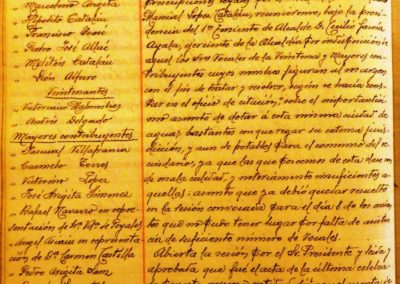 " Marcelino Argita
" Hipólito Catalán
" Francisco Sanz
" Pedro José Allué
" Melitón Catalán
" León Alfaro
Veintenantes
" Victoriano Malumbres
" Andrés Delgado
Mayores contribuyentes
" Pascual Villafranca
" Carmelo Torres
" Victorino López
" José Argita Jimenez
" Rafael Navarro en repre-
sentación de
Angel Casaus en representa-
ción de Dª Carmen Castilla
" Pedro Argita Sanz
Marcial Lopez Catalán, reunieronse, bajo la presi-
dencia del 1er Teniente de Alcalde D. Cecilio García
Ayala, ejerciente de la Alcaldía por indisposición de
aquel los Sres Vocales de la Veintena y Mayores con-
tribuyentes cuyos nombres figuran al margen
con el fin de tratar y resolver, según se hacía cons-
tar en el oficio de citación, sobre el importantísi-
mo asunto de dotar á esta misma ciudad de
aguas bastantes con que regar su extensa juris-
dicción, y aun de potables para el consumo del ve-
cindario, ya que las que poseemos de esta clase son
de mala calidad, y notoriamente insuficientes a-
quellas: asunto que ya debió quedar resuelto
en la sesión convocada para el día 6 de los corrien-
tes que no pudo tener lugar por falta de asisten-
cia de suficiente número de Vocales.
Abierta la sesión por el Sr. Presidente y leída y
aprobada que fué el acta de la última celebra-